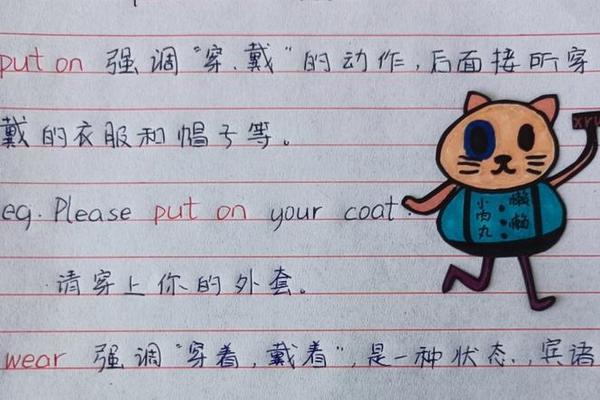 put on 强调“穿、戴”的动作,后面接所穿
戴的衣服和帽子等。
eg. Please put on your coat.
请穿上你的外套。
wear 强调“穿着,戴着”,是一种状态,宾语
xru
小肉丸
懒懒